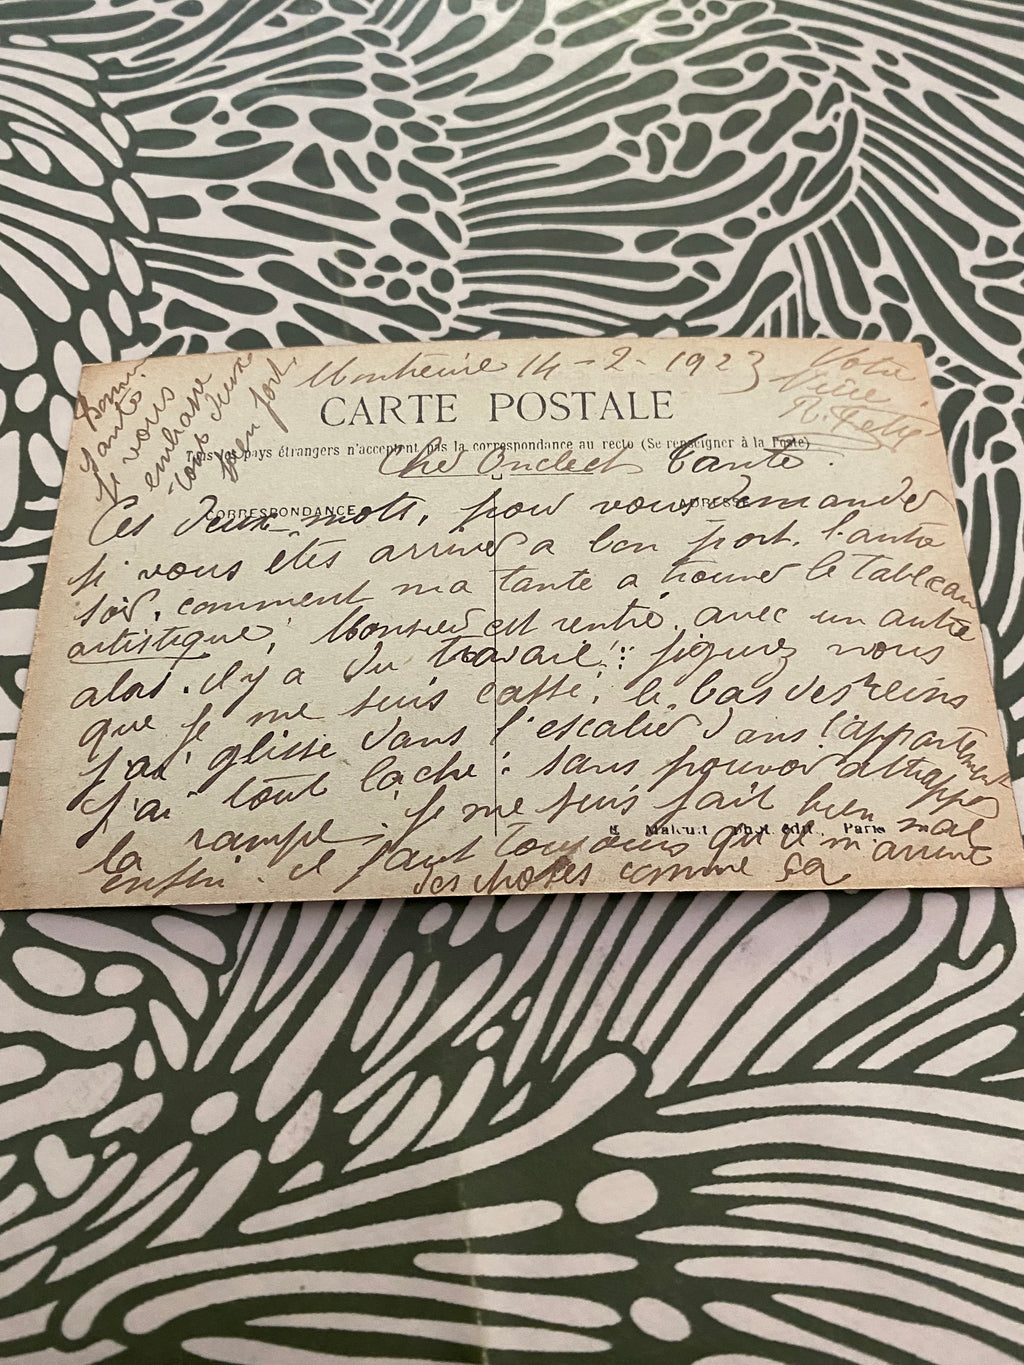 14-2-1923
CARTE POSTALE
Tous les pays étrangers n'acceptent pas la correspondance au recto (Se renseigner à la Poste)
CORRESPONDANCE
ADRESSE
Cher Oncle et Tante.
Ces deux mots, pour vous demander
si vous êtes arriver a bon port. l'autre
soir, comment ma tante a trouver le tableau
artistique, Monsieur est rentré. avec un autre
alors. il y a du travail!! figurez vous
que je me suis cassé, le bas des reins
j'ai glissé dans l'escalier dans l'appartement
j'ai tout laché: sans pouvoir attrapper
la rampe, je me suis fait bien mal
enfin. il faut toujours qu'il m'arrive
des choses comme ça
Bonne
santé.
je vous
embrasse
tout deux
bien fort.
Votre
Nièce
Phot. édit., Paris